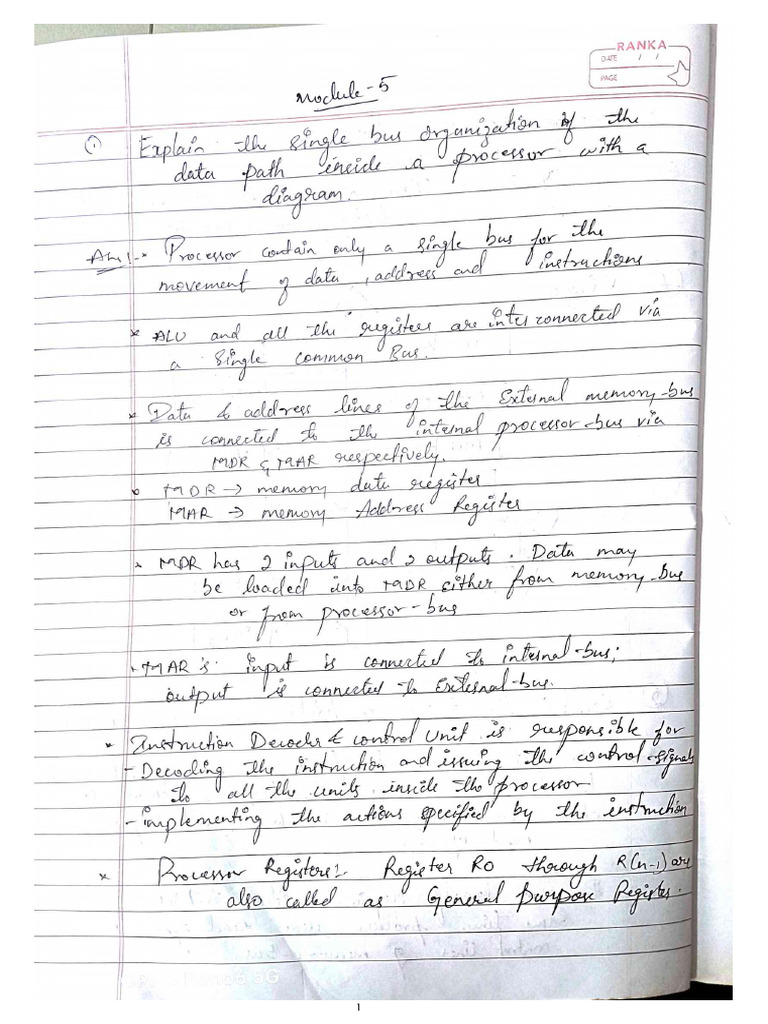 RANKA
DATE / /
PAGE
Module-5
① Explain the single bus organization of the
data path inside a processor with a
diagram.
Ans:- * Processor contain only a single bus for the
movement of data, address and instructions
* ALU and all the registers are interconnected via
a single common Bus.
* Data & address lines of the External memory-bus
is connected to the internal processor-bus via
MDR & MAR respectively.
* MDR → memory data register
MAR → memory Address Register
* MDR has 2 inputs and 2 outputs. Data may
be loaded into MDR either from memory-bus
or from processor-bus
* MAR's input is connected to internal-bus;
output is connected to External-bus.
* Instruction Decoder & control unit is responsible for
- Decoding the instruction and issuing the control-signals
to all the units inside the processor
- implementing the actions specified by the instruction
* Processor Registers:- Register R0 through R(n-1) are
also called as General purpose Register.
1